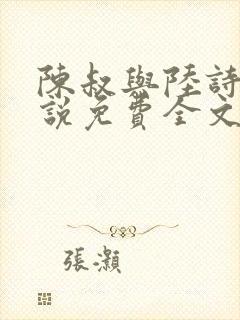 陳叔與陸詩
說免費全文
張灝